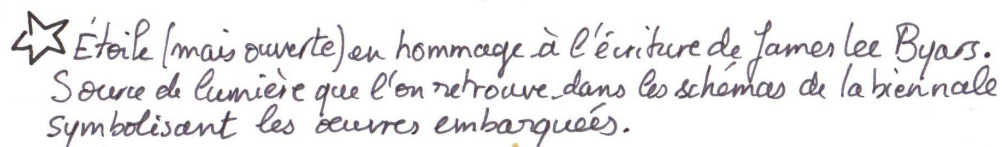 Étoile (mais ouverte) en hommage à l'écriture de James Lee Byars.
Source de lumière que l'on retrouve dans les schémas de la biennale
symbolisant les œuvres embarquées.